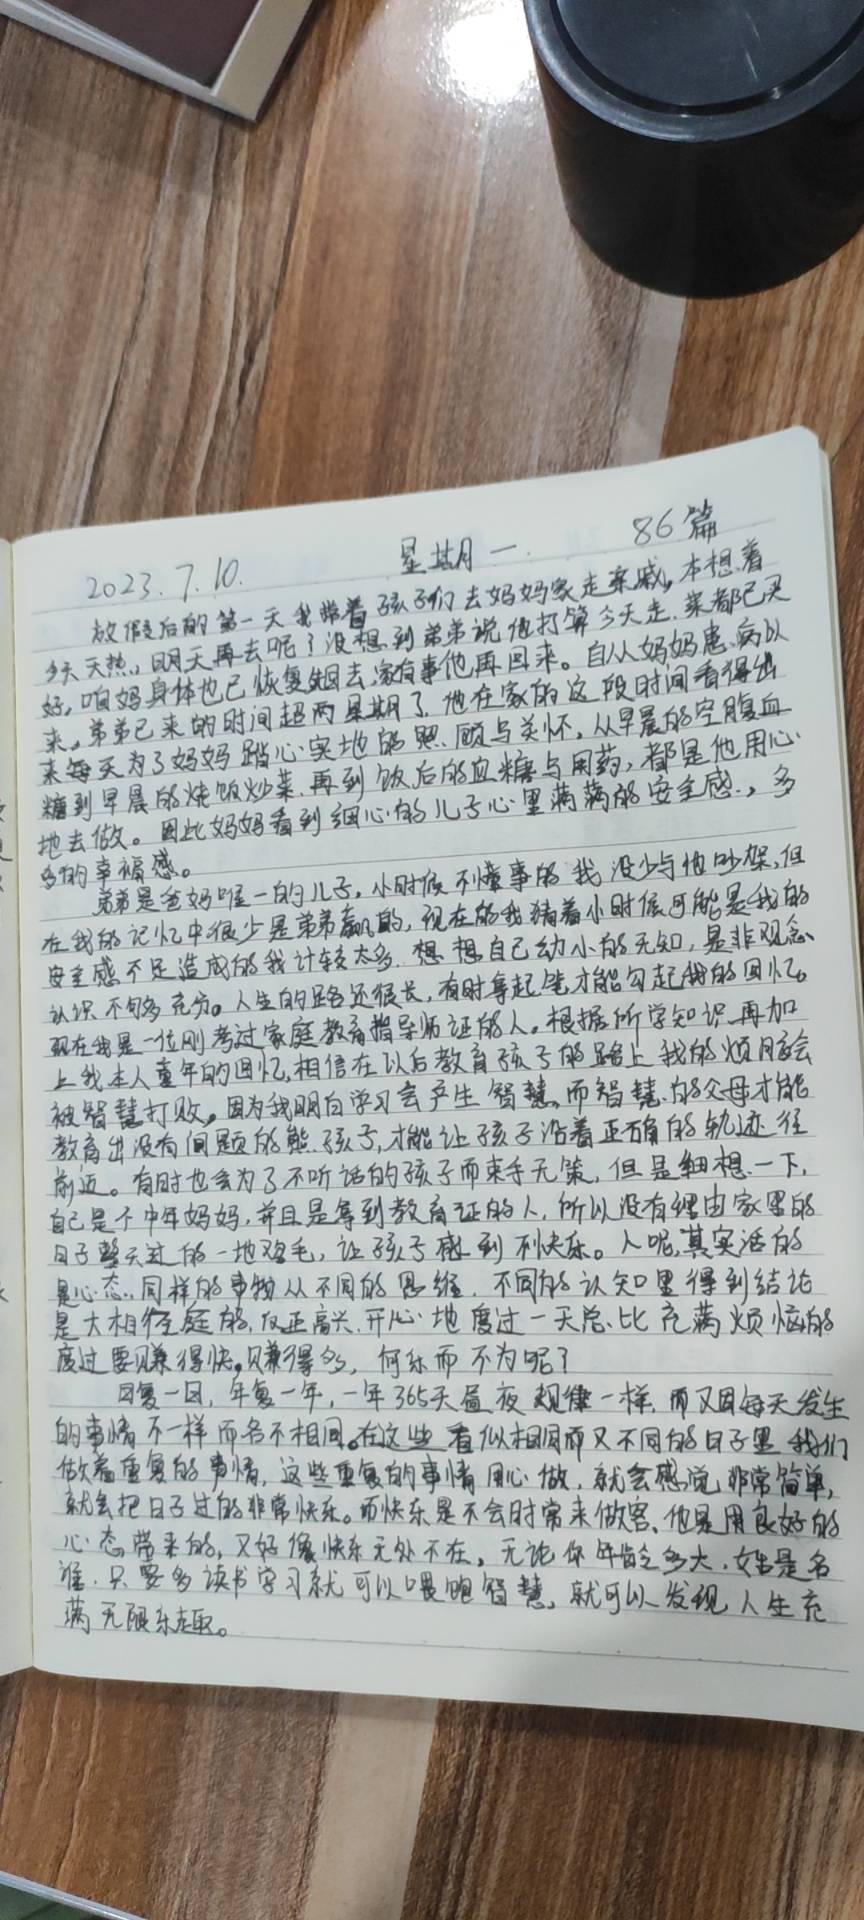 2023.7.10. 星期一. 86篇
放假后的第一天我带着孩子们去妈妈家走亲戚,本想着
今天天热,明天再去呢?没想到弟弟说他打算今天走,菜都已买
好,咱妈身体也已恢复,回去,家有事他再回来。自从妈妈患病以
来,弟弟已来的时间超两星期了.他在家的这段时间看得出
来每天为了妈妈踏心实地的照.顾与关怀,从早晨的空腹血
糖到早晨的烧饭炒菜.再到饭后的血糖与用药,都是他用心
地去做。因此妈妈看到细心的儿子心里满满的安全感.,多
多的幸福感。
弟弟是爸妈唯一的儿子,小时候不懂事的我没少与他吵架,但
在我的记忆中很少是弟弟赢的,现在的我猜着小时候可能是我的
安全感不足造成的我计较太多.想想自己幼小的无知,是非观念
认识不够充分。人生的路还很长,有时拿起笔才能勾起我的回忆。
现在我是一位刚考过家庭教育指导师证的人。根据所学知识再加
上我本人童年的回忆,相信在以后教育孩子的路上我的烦恼会
被智慧打败。因为我明白学习会产生智慧,而智慧.的父母才能
教育出没有问题的熊.孩子,才能让孩子沿着正确的轨迹往
前迈。有时也会为了不听话的孩子而束手无策,但是细想一下,
自己是个中年妈妈,并且是拿到教育证的人,所以没有理由家里的
日子整天过的一地鸡毛,让孩子感到不快乐。人呢,其实活的
是心态.同样的事物从不同的思维.不同的认知里得到结论
是大相径庭的,反正高兴.开心地度过一天总比充满烦恼的
度过要赚得快,赚得多,何乐而不为呢?
日复一日,年复一年,一年365天昼夜规律一样,而又因每天发生
的事情不一样而各不相同。在这些看似相同而又不同的日子里我们
做着重复的事情,这些重复的事情用心做,就会感觉非常简单,
就会把日子过的非常快乐。而快乐是不会时常来做客、他是用良好的
心态带来的,又好像快乐无处不在,无论你年龄多大.姓是名
谁.只要多读书学习就可以喂饱智慧,就可以发现人生充
满无限乐趣。